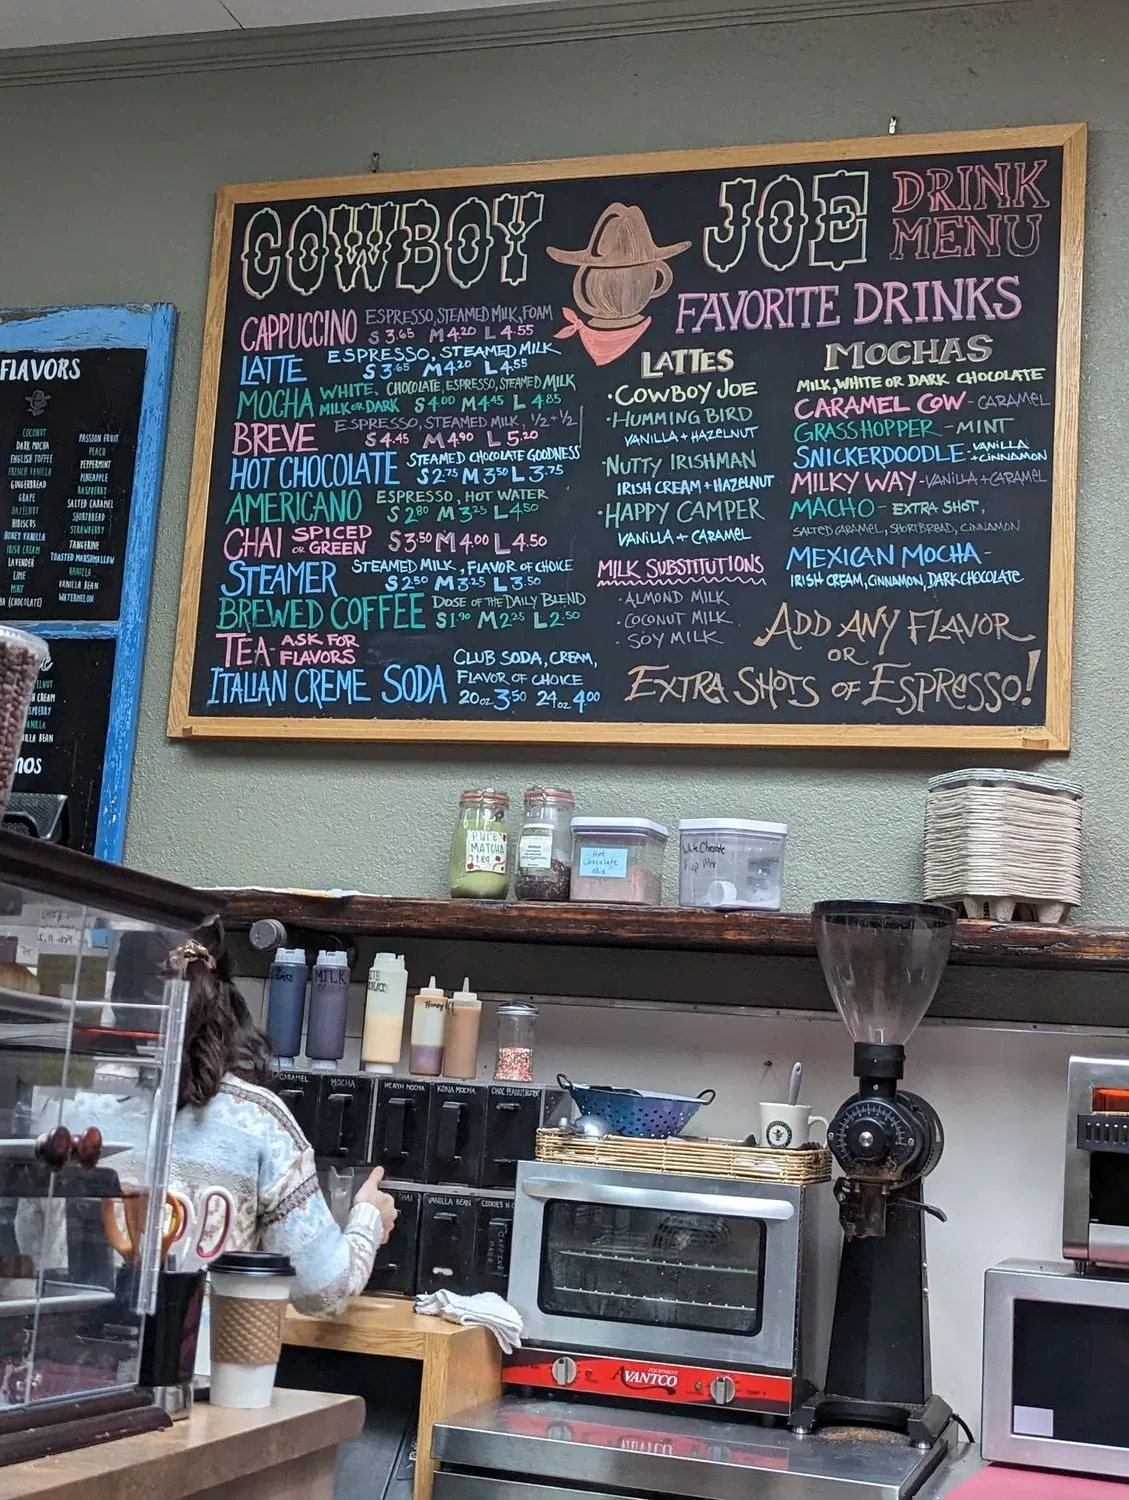 COWBOY JOE
DRINK
MENU
CAPPUCCINO ESPRESSO, STEAMED MILK, FOAM
S 3.65 M 4.20 L 4.55
LATTE ESPRESSO, STEAMED MILK
S 3.65 M 4.20 L 4.55
MOCHA WHITE, CHOCOLATE, ESPRESSO, STEAMED MILK
MILK OR DARK S 4.00 M 4.45 L 4.85
BREVE ESPRESSO, STEAMED MILK, 1/2 + 1/2
S 4.45 M 4.90 L 5.20
HOT CHOCOLATE STEAMED CHOCOLATE GOODNESS
S 2.75 M 3.50 L 3.75
AMERICANO ESPRESSO, HOT WATER
S 2.80 M 3.25 L 4.50
CHAI SPICED OR GREEN S 3.50 M 4.00 L 4.50
STEAMER STEAMED MILK, FLAVOR OF CHOICE
S 2.50 M 3.25 L 3.50
BREWED COFFEE DOSE OF THE DAILY BLEND
S 1.90 M 2.25 L 2.50
TEA - ASK FOR FLAVORS
ITALIAN CREME SODA CLUB SODA, CREAM,
FLAVOR OF CHOICE
20oz 3.50 24oz 4.00
FAVORITE DRINKS
LATTES
·COWBOY JOE
·HUMMING BIRD
VANILLA + HAZELNUT
·NUTTY IRISHMAN
IRISH CREAM + HAZELNUT
·HAPPY CAMPER
VANILLA + CARAMEL
MILK SUBSTITUTIONS
·ALMOND MILK
·COCONUT MILK
·SOY MILK
MOCHAS
MILK, WHITE OR DARK CHOCOLATE
CARAMEL COW - CARAMEL
GRASSHOPPER - MINT
SNICKERDOODLE - VANILLA + CINNAMON
MILKY WAY - VANILLA + CARAMEL
MACHO - EXTRA SHOT,
SALTED CARAMEL, SHORTBREAD, CINNAMON
MEXICAN MOCHA -
IRISH CREAM, CINNAMON, DARK CHOCOLATE
ADD ANY FLAVOR
OR
EXTRA SHOTS OF ESPRESSO!
FLAVORS
COCONUT
DARK MOCHA
ENGLISH TOFFEE
FRENCH VANILLA
GINGERBREAD
GRAPE
HAZELNUT
HIBISCUS
HONEY VANILLA
IRISH CREAM
LAVENDER
LIME
MINT
(CHOCOLATE)
PASSION FRUIT
PEACH
PEPPERMINT
PINEAPPLE
RASPBERRY
SALTED CARAMEL
SHORTBREAD
STRAWBERRY
TANGERINE
TOASTED MARSHMALLOW
VANILLA
VANILLA BEAN
WATERMELON
PURE
MATCHA
TEA
Hot
Chocolate
Mix
White Chocolate
MILK
Honey
CARAMEL
MOCHA
HEATH MOCHA
KONA MOCHA
CHOC PEANUT BUTTER
VANILLA BEAN
COOKIES N
EQUIPMENT
AVANTCO